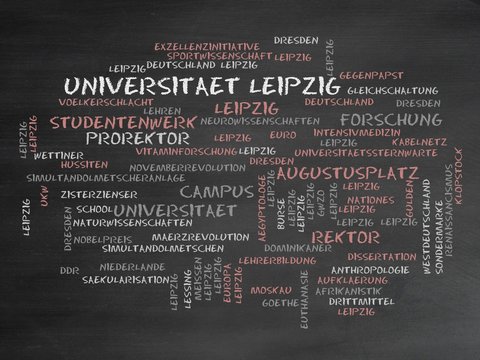 DRESDEN
EXZELLENZINITIATIVE
SPORTWISSENSCHAFT LEIPZIG
LEIPZIG DEUTSCHLAND LEIPZIG
GEGENPAPST
UNIVERSITAET LEIPZIG
GLEICHSCHALTUNG
VOELKERSCHLACHT
LEHREN
LEIPZIG
DEUTSCHLAND
DRESDEN
STUDENTENWERK
NEUROWISSENSCHAFTEN
FORSCHUNG
PROREKTOR
LEIPZIG
EURO
INTENSIVMEDIZIN
KABELNETZ
LEIPZIG
LEIPZIG
WETTINER
VITAMINFORSCHUNG
LEIPZIG
UNIVERSITAETSSTERNWARTE
HUSSITEN
NOVEMBERREVOLUTION
DRESDEN
SIMULTANDOLMETSCHERANLAGE
AUGUSTUSPLATZ
UKW
ZISTERZIENSER
CAMPUS
LEIPZIG
LEIPZIG
AEGYPTOLOGE
BURSE
LEIPZIG
LEIPZIG
GWZO
NATIONES
GULDEN
KLOPSTOCK
RENAISSANCISMUS
SONDERMARKE
WESTDEUTSCHLAND
LEIPZIG
SCHOOL
UNIVERSITAET
LEIPZIG
DRESDEN
NATURWISSENSCHAFTEN
LEIPZIG
LEIPZIG
NOBELPREIS
MAERZREVOLUTION
REKTOR
SIMULTANDOLMETSCHEN
DOMINIKANER
DISSERTATION
LEHRERBILDUNG
DDR
NIEDERLANDE
ANTHROPOLOGIE
SAEKULARISATION
AUFKLAERUNG
LEIPZIG
LESSING
MEISSEN
LEIPZIG
LEIPZIG
EUROPA
LEIPZIG
MOSKAU
AFRIKANISTIK
GOETHE
EUTHANASIE
DRITTMITTEL
LEIPZIG